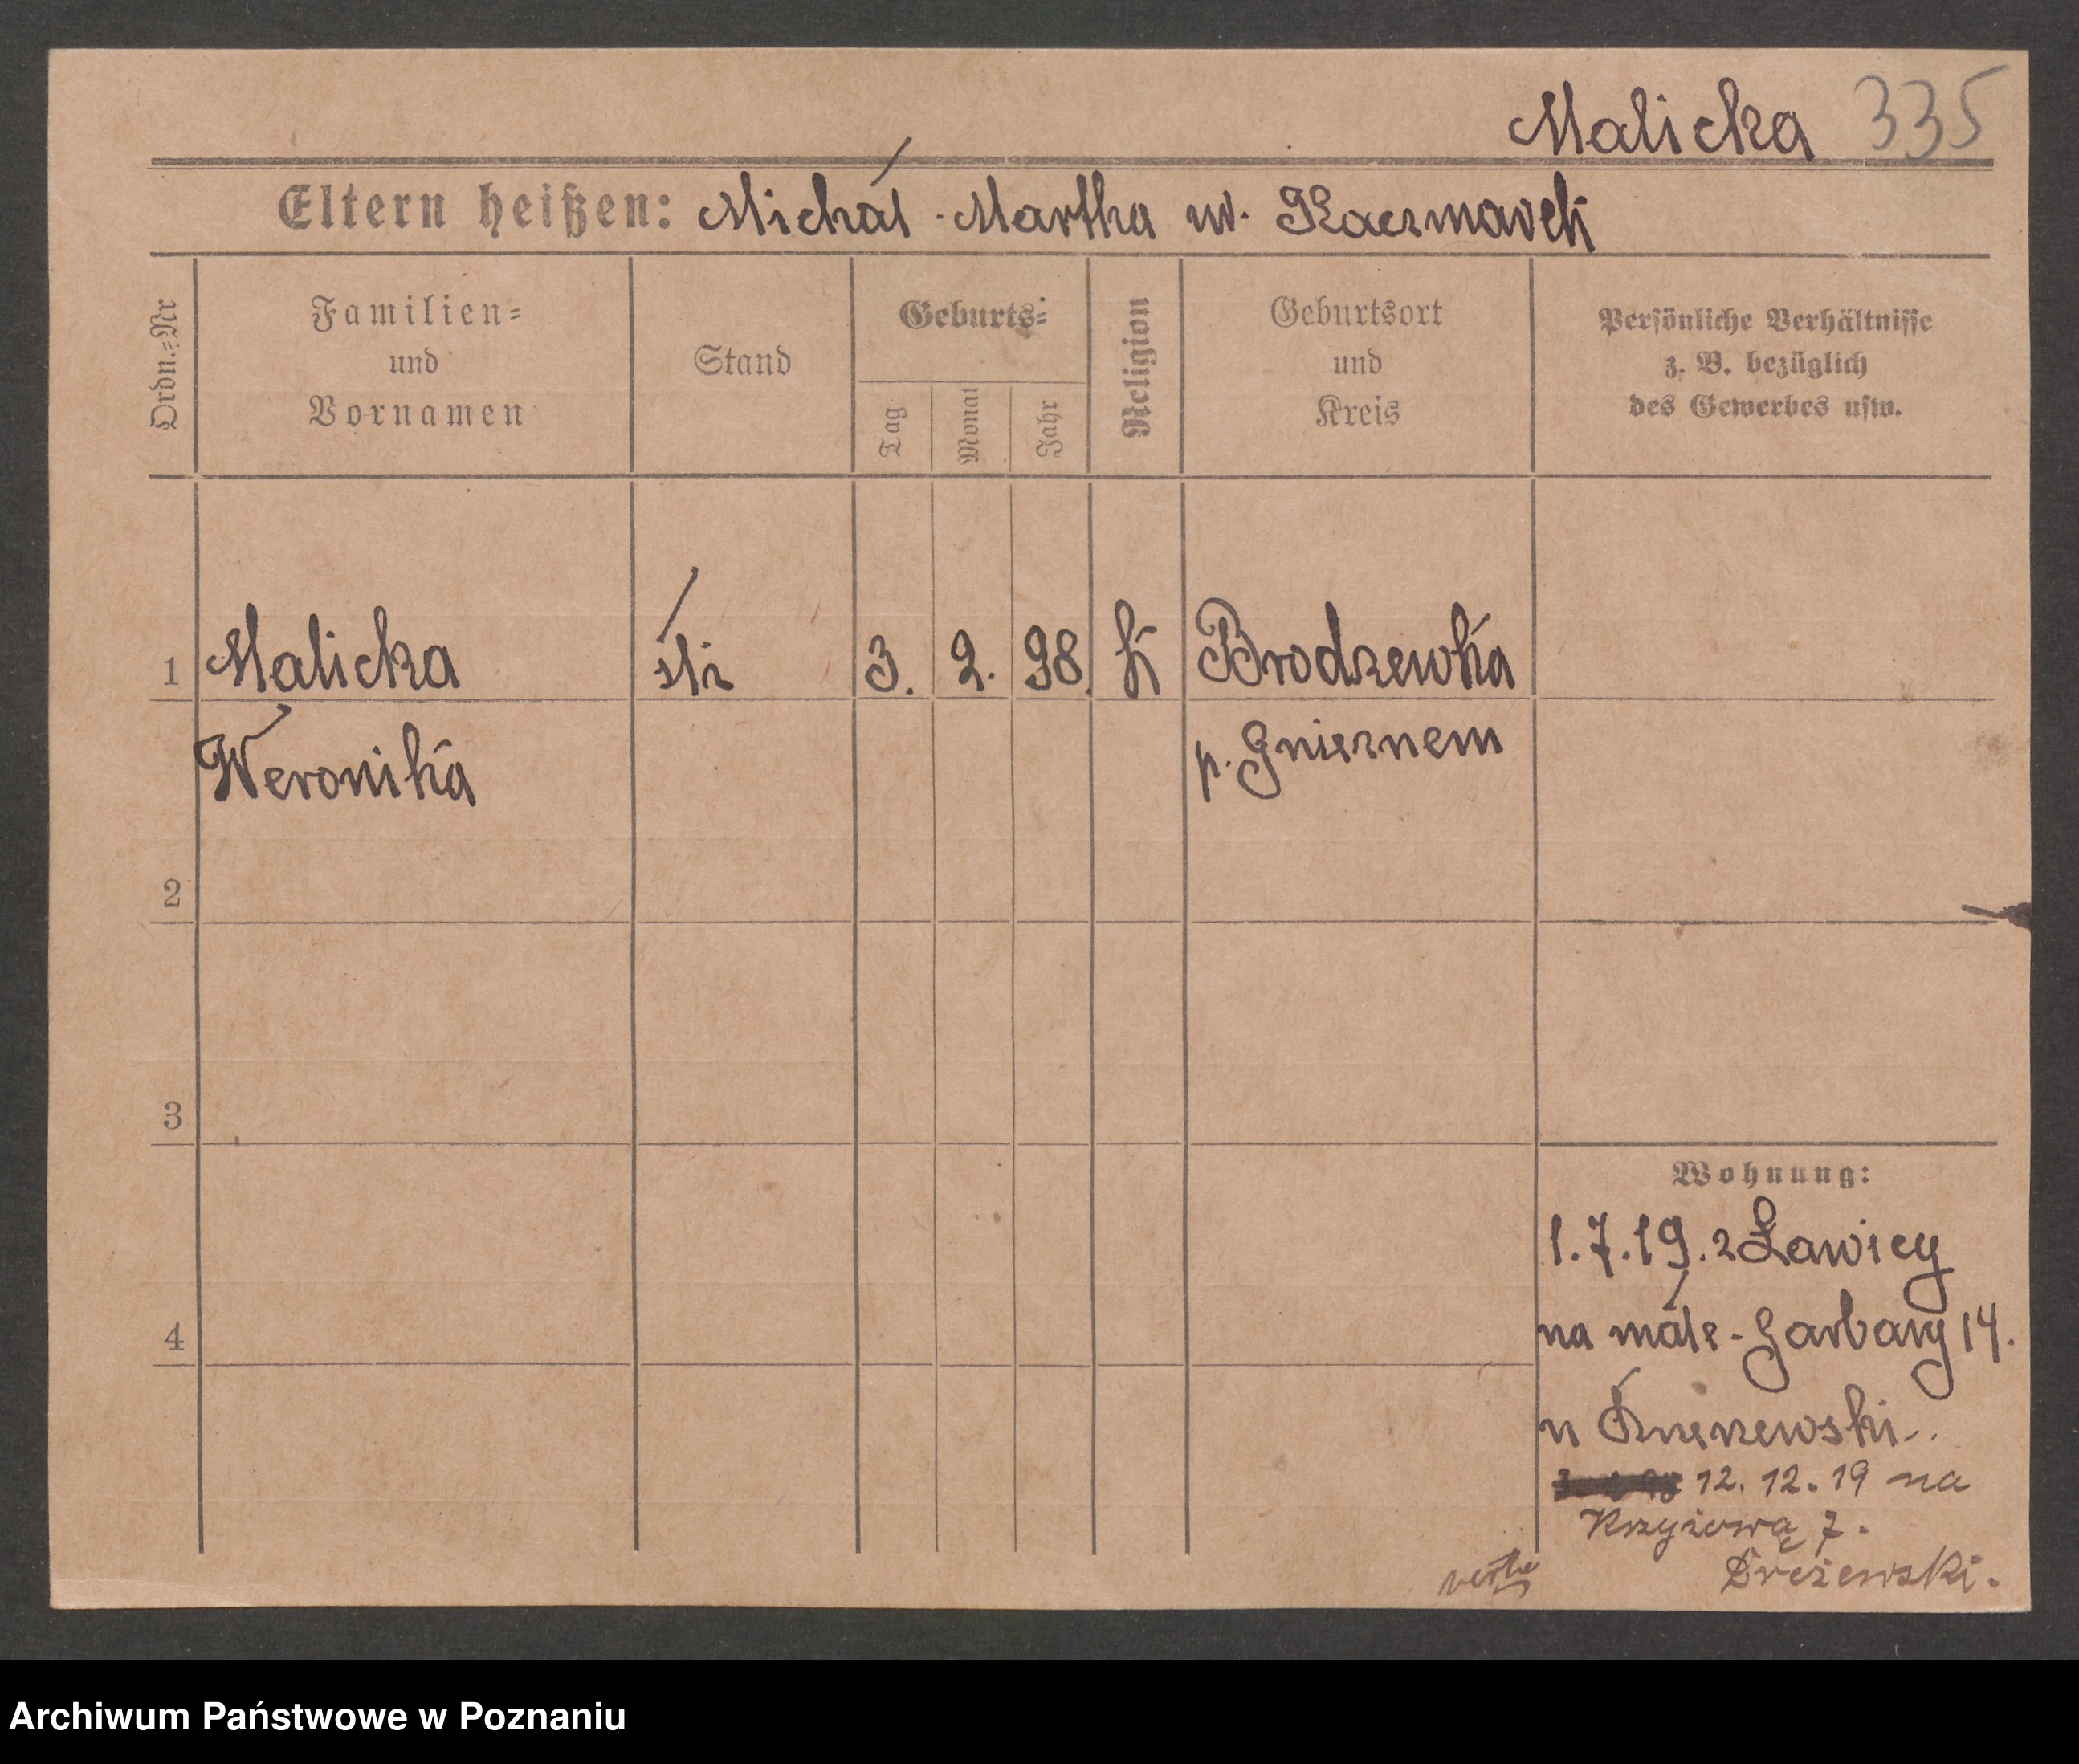 Malicka 335
Eltern heißen: Michał Martha w. Kaczmarek
Ordn.=Nr
Familien=
und
Vornamen
Stand
Geburts=
Tag
Monat
Jahr
Religion
Geburtsort
und
Kreis
Persönliche Verhältnisse
z. B. bezüglich
des Gewerbes usw.
1 Malicka 3. 2. 98. k Brodzewka
Weronika p. Gnieznem
2
3
4
Wohnung:
1.7.19. z Ławicy
na małe-Garbary 14.
u
12. 12. 19 na
Krzyżową 7.
Dreżewski.
Archiwum Państwowe w Poznaniu